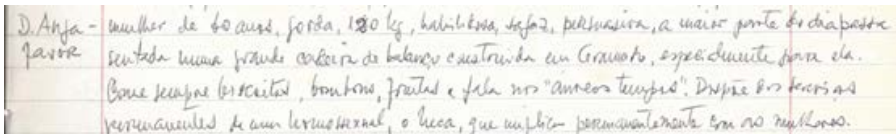 D. Anja - mulher de 60 anos, gorda, 120 kg, habilidosa, sagaz, persuasiva, a maior parte do dia passa
Javor sentada numa grande cadeira de balanço construída em Gramado, especialmente para ela.
Come sempre biscoitos, bombons, frutas e fala nos "áureos tempos". Dispõe dos serviços
permanentes de um homossexual, o Neca, que implica permanentemente com as mulheres.